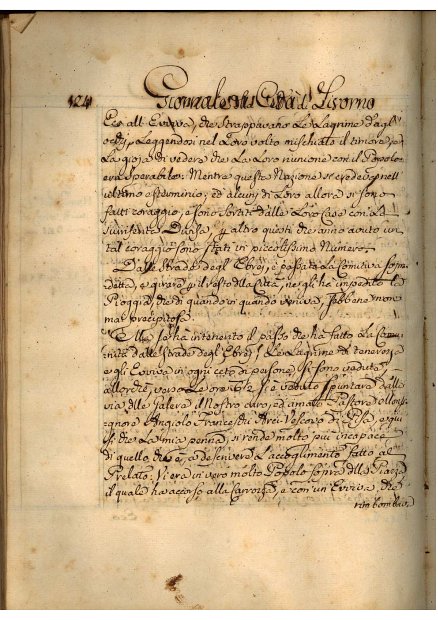 124 Giornale della Città di Livorno
Eco all'Evviva, che strappavano le lagrime dagl'
occhj, leggendosi nel loro volto mischiato il timore, e
la gioja di vedere che la loro riunione con il Popolo
era sperabile. Mentre questa Nazione si credeva nell'
ultimo esterminio; ed alcuni di loro allora si sono
fatti coraggio, e sono sortiti dalle loro case con
altro questi che ànno avuto un
tal coraggio sono stati in piccolissimo Numero.
Dalle strade degl'Ebrej è passata la Comitiva sopra
detta, e girare il resto della Città, ne gli ha impedito la
Pioggia, che di quando in quando veniva, sebbene non
mai precipitosa.
Ella se ha intenerito il passo che ha fatto la
dalle strade degl'Ebrej, le lagrime di tenerezza
e gli Evviva in ogni ceto di persone, si sono vedute
allorchè verso le ore si è veduto spuntare dalla
via della Galera il Nostro caro, ed amato Pastore Monsi
gnore Angiolo Franceschi Arci Vescovo di Pisa, e qui
sì che la mia penna si rende molto più incapace
di quello che è, a descrivere l'accoglimento fatto al
Prelato. Vi era in vero molto Popolo sopra della Piazza
il quale ha accorso alla Carrozza, e con un Evviva, che
rimbombava